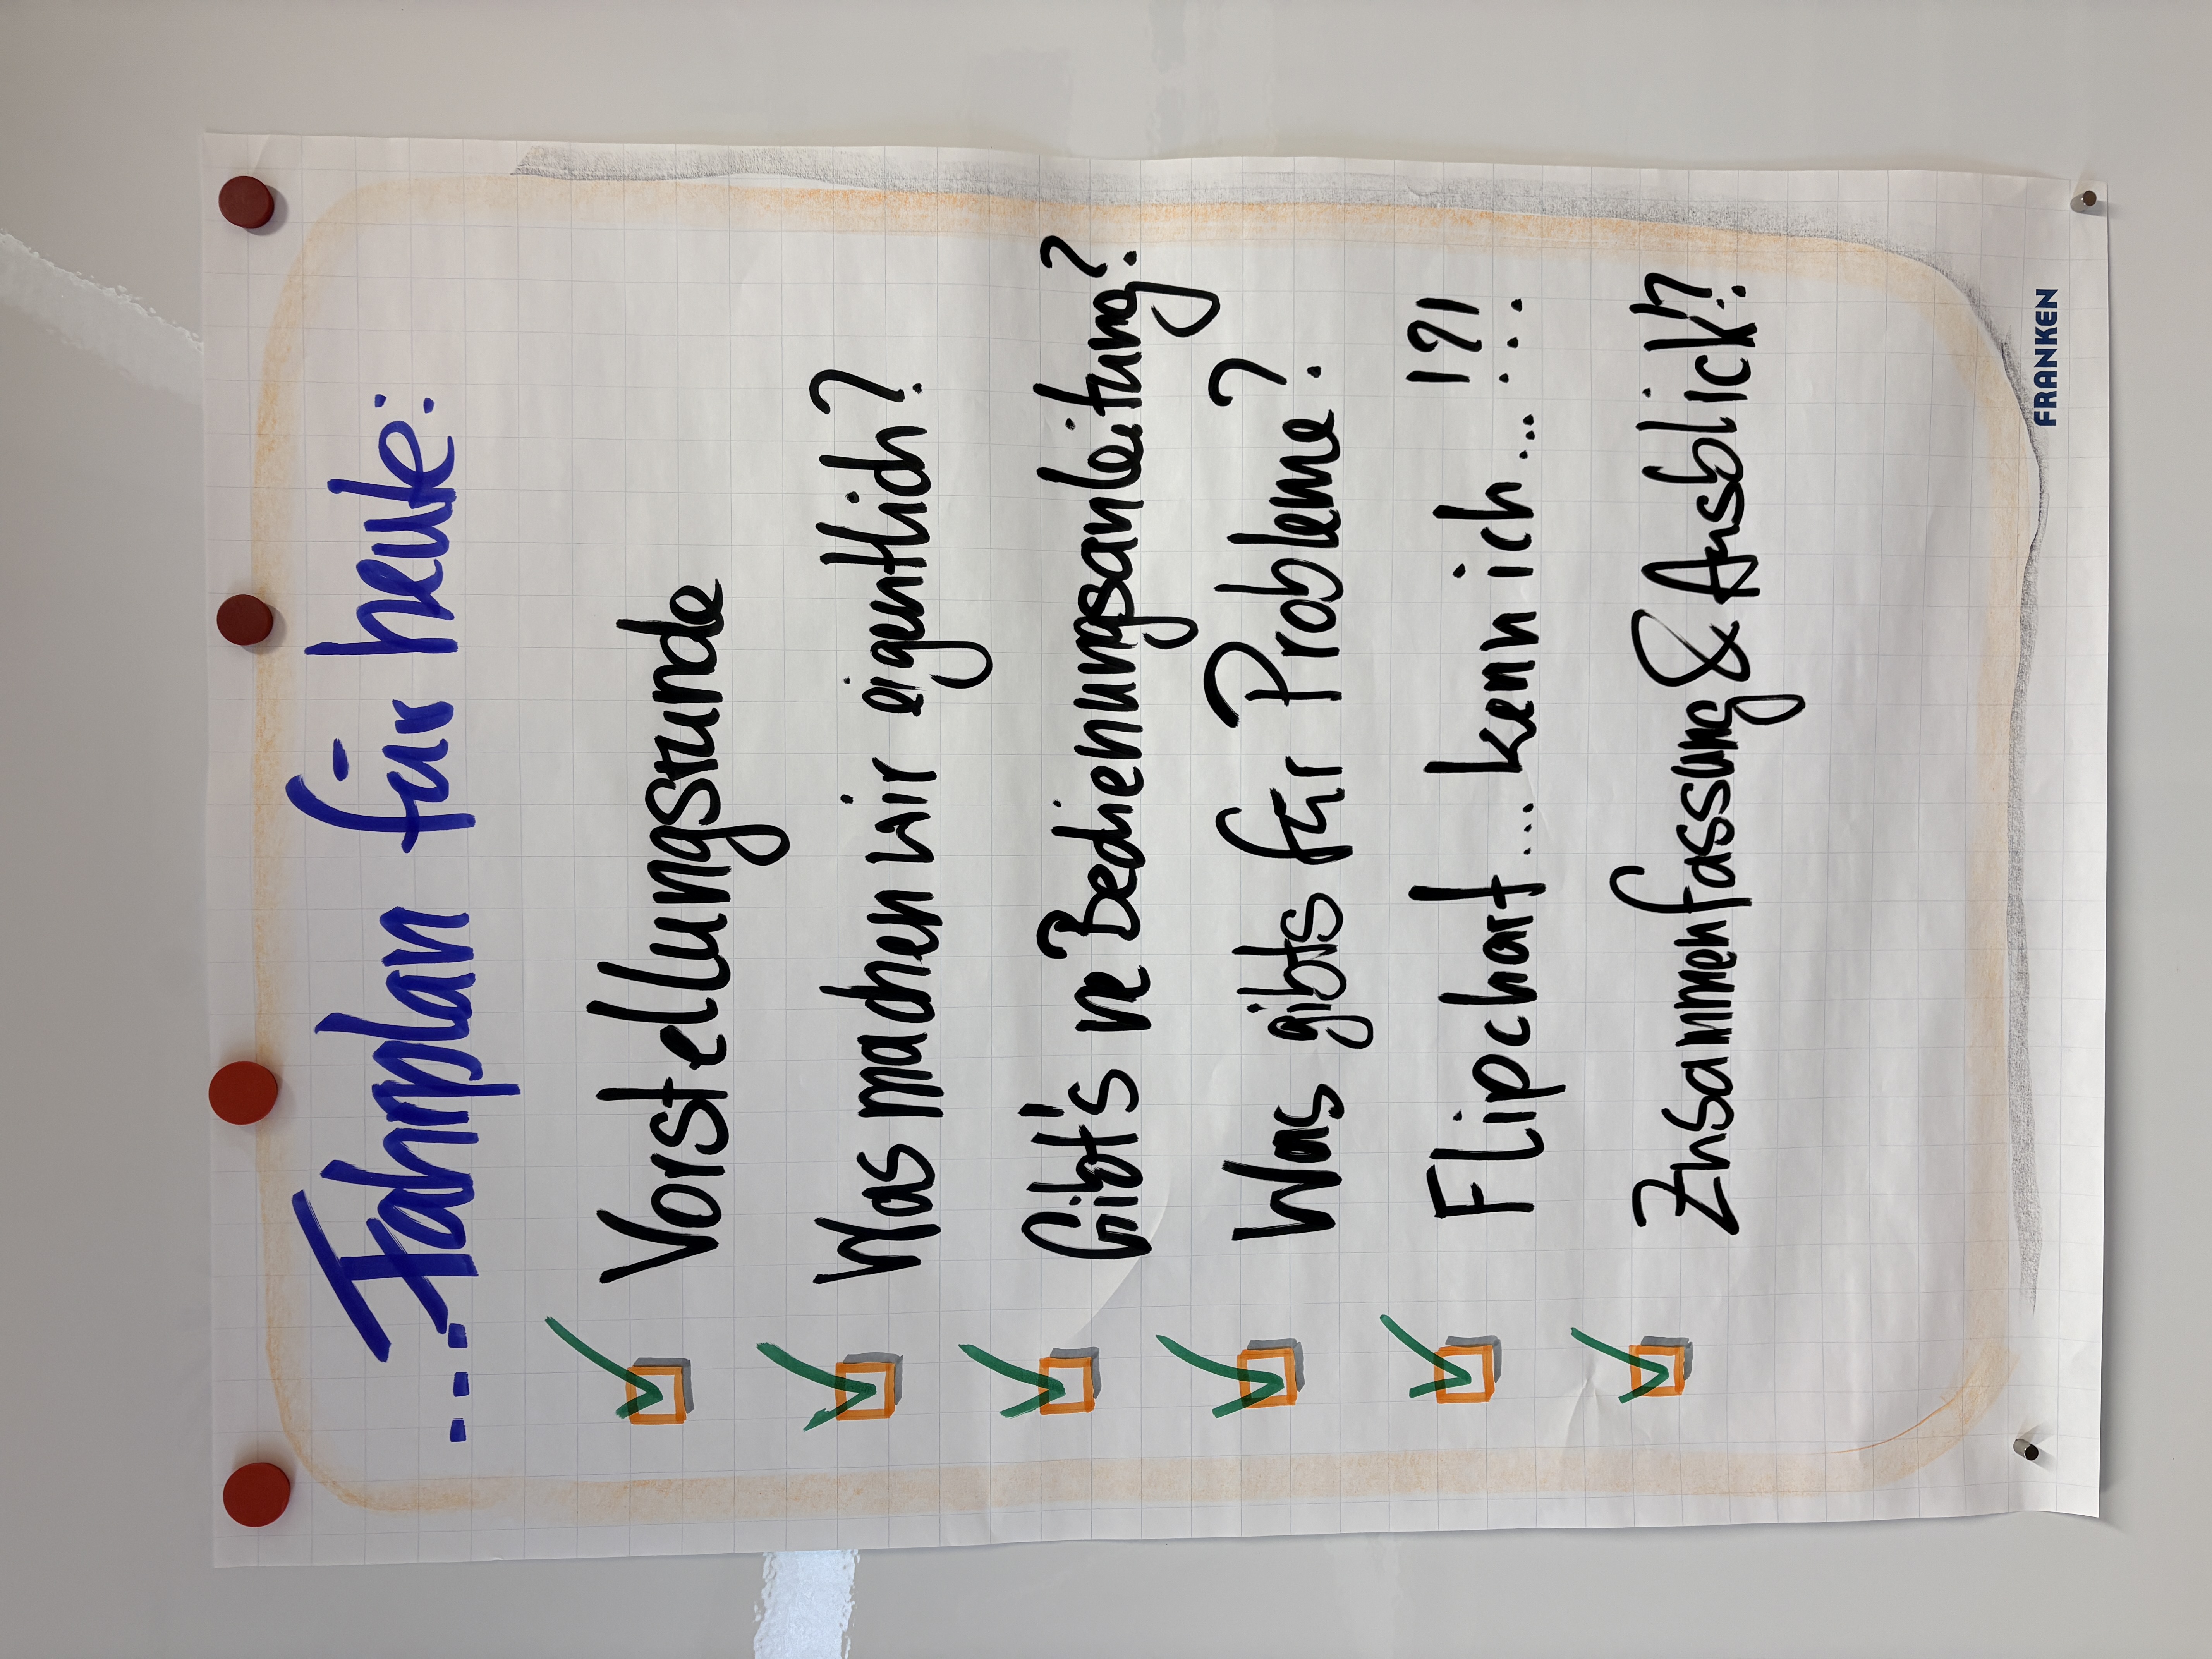 ...Fahrplan für heute:
Vorstellungsrunde
Was machen wir eigentlich?
Gibt's ne Bedienungsanleitung?
Was gibts für Probleme?
Flipchart... kenn ich... !?!
Zusammenfassung & Ausblick!?
FRANKEN